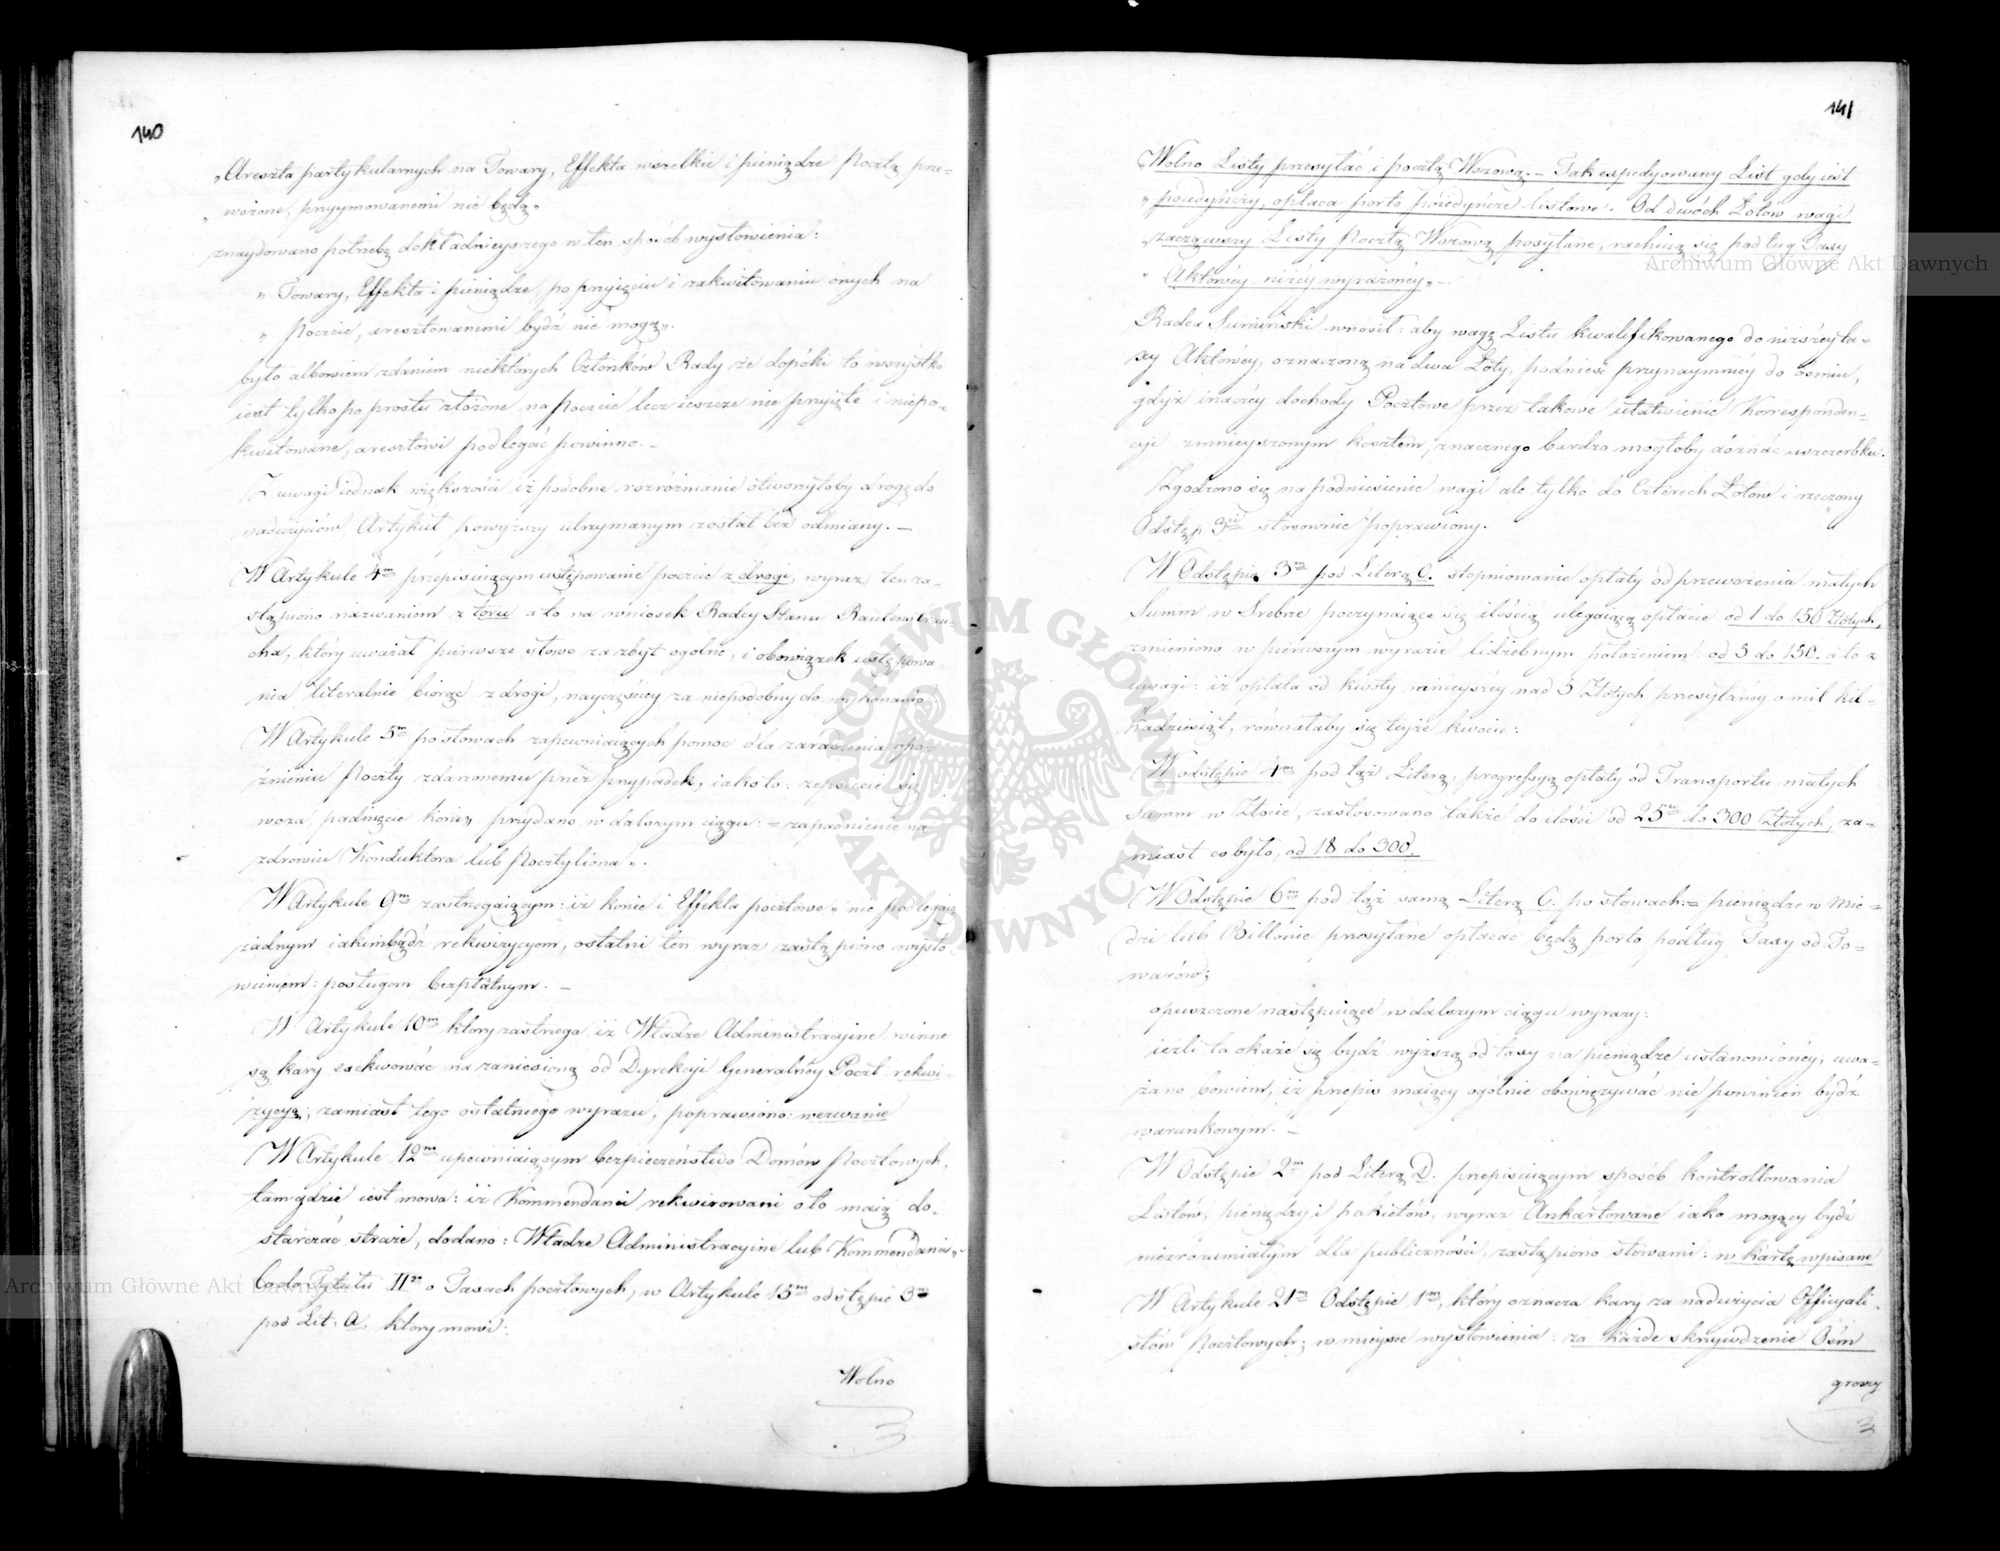 140
„Areszta partykularnych na Towary, Effekta wszelkie i pieniądze Pocztą prze-
„wożone, przyymowanemi nie będą„
znaydowano potrzebę dokładnieyszego w ten sposób wysłowienia:
„Towary, Effekta i pieniądze, po przyięciu i zakwitowaniu onych na
„Poczcie, aresztowanemi bydź nie mogą„.
było albowiem zdaniem niektórych Członków Rady że dopóki to wszystko
iest tylko po prostu złożone na Poczcie lecz ieszcze nie przyięte i niepo-
kwitowane, aresztowi podlegać powinno. –
Z uwagi iednak większości iż podobne rozróżnianie otworzyłoby drogę do
nadużyciów Artykuł powyższy utrzymanym został bez odmiany. –
W Artykule 4m przepisuiącym ustępowanie poczcie z drogi, wyraz ten za-
stąpiono nazwaniem z toru a to na wniosek Radcy Stanu Rautenstrau-
cha, który uważał pierwsze słowo za zbyt ogólne, i obowiązek ustępowa-
nia literalnie biorąc z drogi, nayczęściey za niepodobny do wykonania
W Artykule 5m po słowach zapewniaiących pomoc dla zaradzenia opó-
źnieniu Poczty zdarzonemu przez przypadek, iako to: zepsucie się
woza, padnięcie koni„ przydano w dalszym ciągu: = zapadnienie na
zdrowiu Konduktora lub Pocztyliona„.
W Artykule 9m zastrzegaiącym: iż konie i Effekta pocztowe„ nie podlegaią
żadnym iakimbądź rekwizycyom, ostatni ten wyraz zastąpiono wysło-
wieniem: posługom bezpłatnym. –
W Artykule 10m który zastrzega, iż Władze Administracyine winne
są kary exekwować na zaniesioną od Dyrekcyi Generalnéy Poczt rekwi-
zycyą, zamiast tego ostatniego wyrazu, poprawiono: wezwanie
W Artykule 12m upewniaiącym bezpieczeństwo Domów Pocztowych,
tam gdzie iest mowa: iż Kommendanci rekwirowani o to maią do-
starczać straże, dodano: Władze Administracyine lub Kommendanci„
Co do Tytułu IIgo o Taxach pocztowych, w Artykule 15m odstępie 3m
pod Lit: A. który mówi:
Wolno
141
„Wolno Listy przesyłać i pocztą Wozową. – Tak expedyowany List gdy iest
„poiedyńczy, opłaca porto poiedyńcze listowe. Od dwóch Łotów wagi
„zacząwszy Listy Pocztą Wozową posyłane, rachuią się podług Taxy
„Aktowéy niżéy wyrażonéy„ –
Radca Sumiński wnosił: aby wagę Listu kwalifikowanego do niższéy ta-
xy Aktowéy, oznaczoną na dwa Łoty, podnieść przynaymniéy do ośmiu,
gdyż inaczéy dochody Pocztowe przez takowe ułatwienie Korresponden-
cyi zmnieyszonym kosztem, znacznego bardzo mogłoby doznać uszczerbku.
Zgodzono się na podniesienie wagi ale tylko do Czterech Łotów i rzeczony
Odstęp 3ci stosownie poprawiony.
W Odstępie 3m pod Literą C. stopniowanie opłaty od przewozenia małych
Summ w Srebrze poczynaiące się ilością ulegaiącą opłacie od 1 do 150 Złotych,
zmieniono w pierwszym wyrazie liczebnym położeniem: od 5 do 150. a to z
uwagi: iż opłata od kwoty mnieyszéy nad 5 Złotych przesyłanéy o mil kil-
kadziesiąt, równałaby się teyże kwocie:
W odstępie 4m pod tąż Literą, progressyą opłaty od Transportu małych
Summ w Złocie, zastosowano także do ilości od 25ciu do 300 Złotych, za-
miast co było, od 18 do 300.
W Odstępie 6m pod taż samą Literą C. po słowach: = pieniądze w mie-
dzi lub Billonie przesyłane opłacać będą porto podług Taxy od To-
warów;
opuszczone następuiące w dalszym ciągu wyrazy:
ieżli ta okaże się bydź wyższą od taxy na pieniądze ustanowionéy, uwa-
żano bowiem, iż przepis maiący ogólnie obowięzywać nie powinien bydź
warunkowym. –
W Odstępie 2m pod Literą D. przepisuiącym sposób kontrollowania
Listów, pieniędzy i pakietów, wyraz Ankartowane iako mogący bydź
niezrozumiałym dla publiczności, zastąpiono słowami: w kartę wpisane
W Artykule 21m Odstępie 1m, który oznacza kary za nadużycia Officyali-
stów Pocztowych; w mieysce wysłowienia: za każde skrzywdzenie Ośm
groszy
ARCHIWUM GŁÓWNE AKT DAWNYCH
Archiwum Główne Akt Dawnych
Archiwum Główne Akt Dawnych